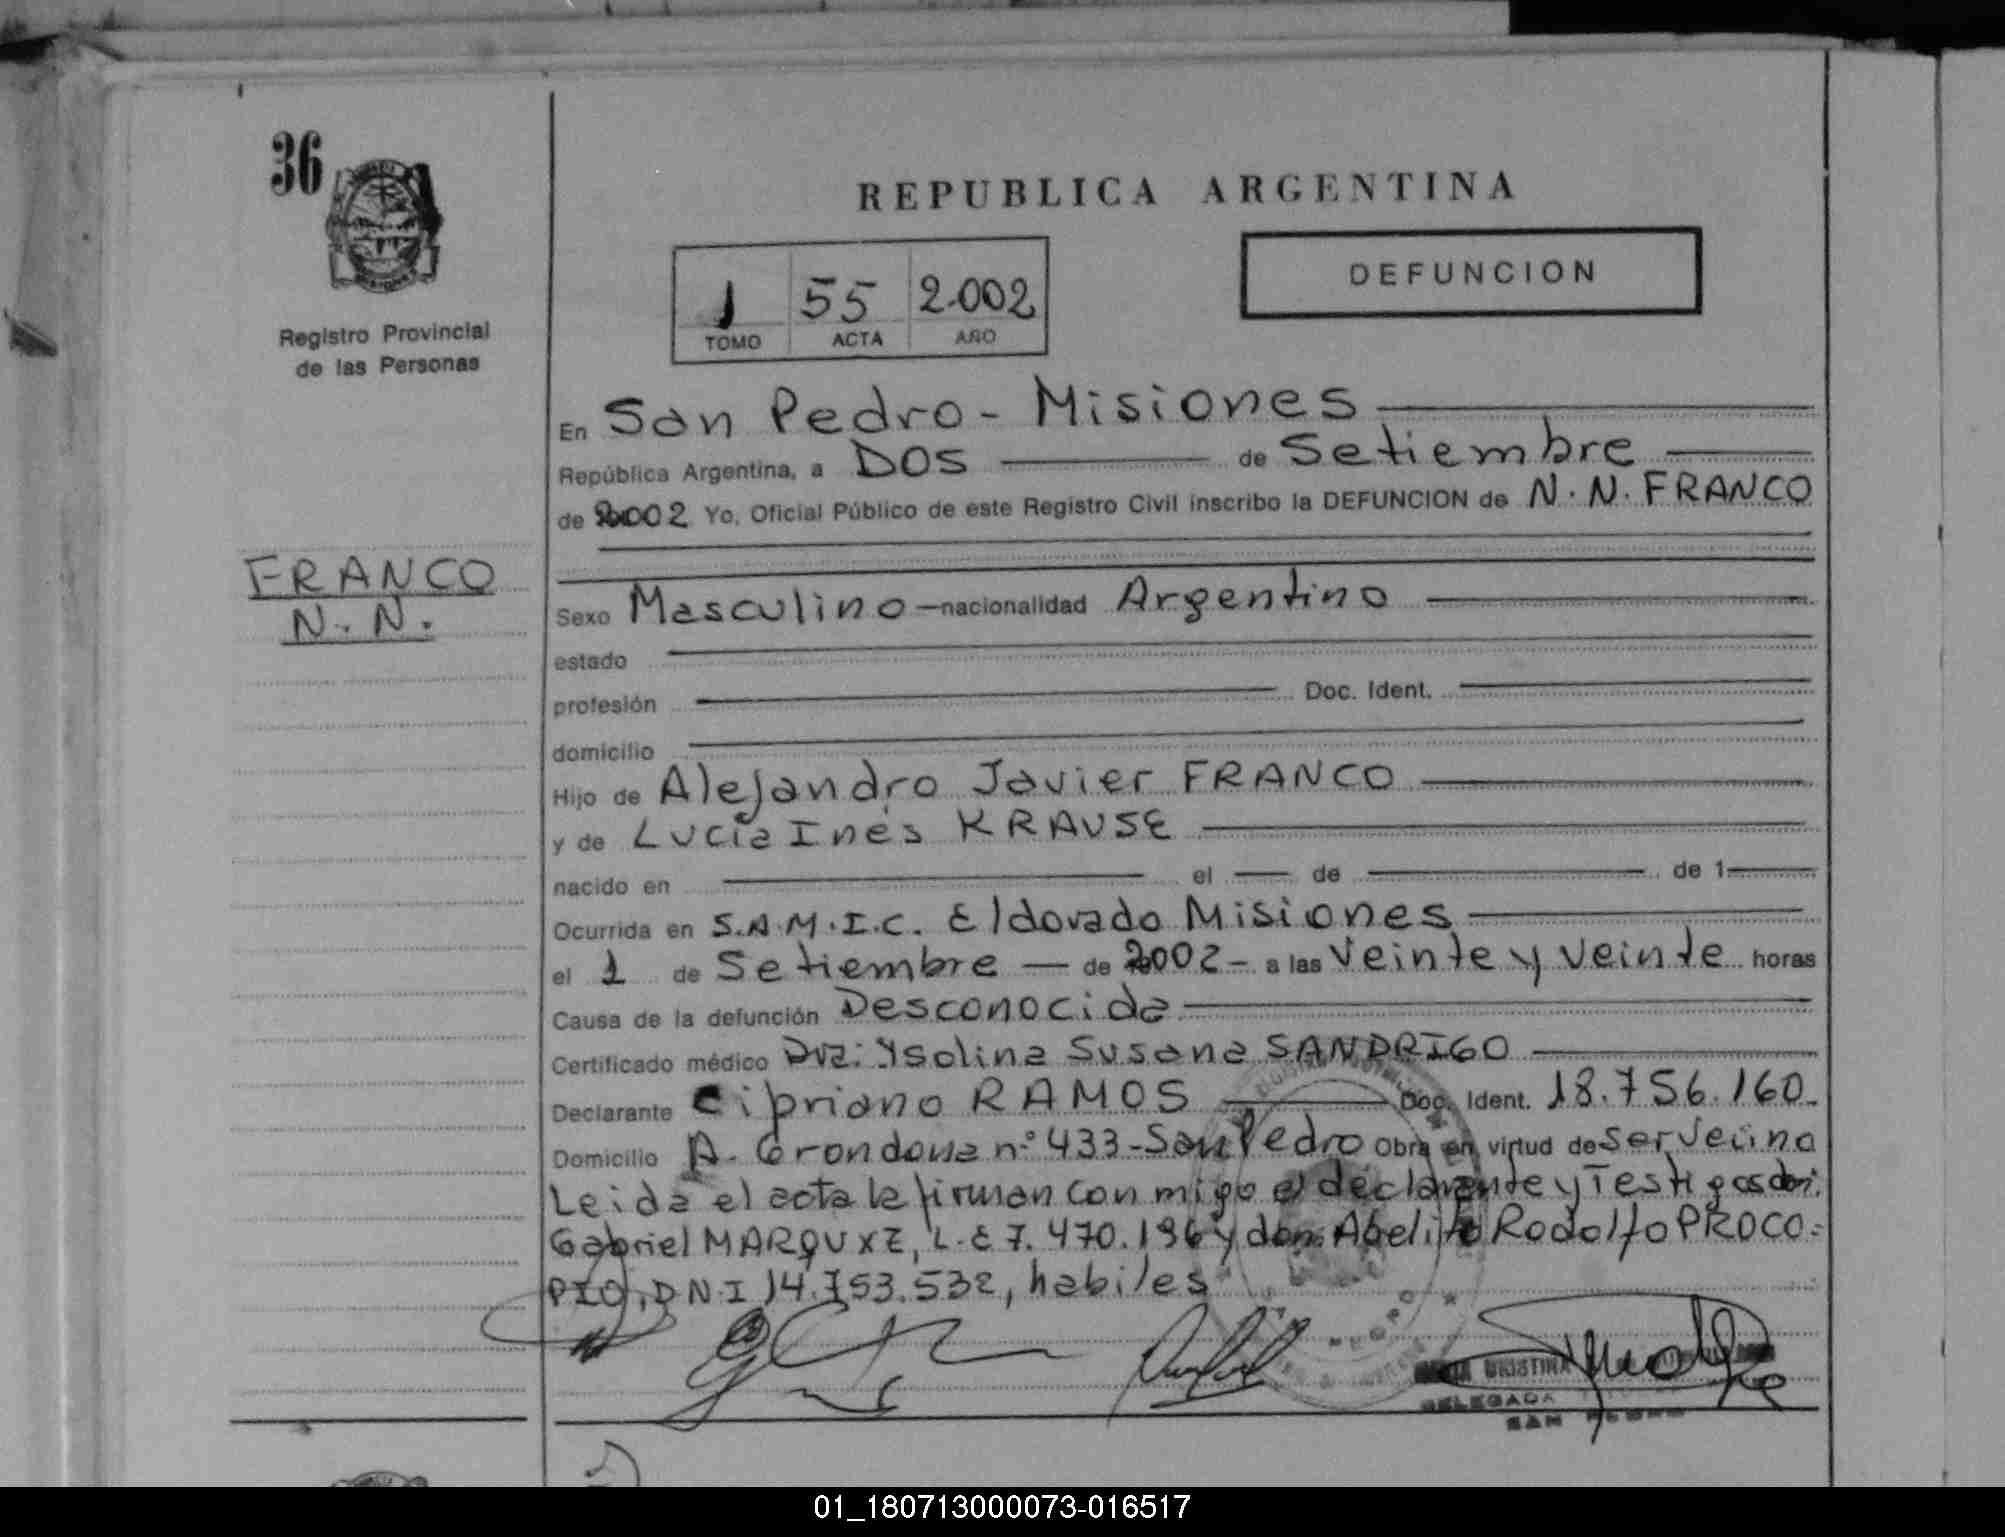 36
REPUBLICA ARGENTINA
DEFUNCION
1 55 2.002
TOMO ACTA AÑO
Registro Provincial
de las Personas
En San Pedro - Misiones
República Argentina, a DOS de Setiembre
de 2002 Yo, Oficial Público de este Registro Civil inscribo la DEFUNCION de N.N. FRANCO
FRANCO
N.N.
Sexo Masculino nacionalidad Argentino
estado
profesión Doc. Ident.
domicilio
Hijo de Alejandro Javier FRANCO
y de Lucía Inés KRAUSE
nacido en el de de 1
Ocurrida en S.A.M.I.C. Eldorado Misiones
el 1 de Setiembre de 2002 - a las Veinte y Veinte horas
Causa de la defunción Desconocida
Certificado médico Dra: Ysolina Susana SANDRIGO
Declarante Cipriano RAMOS Doc. Ident. 18.756.160.
Domicilio A. Grondona n° 433 - San Pedro Obra en virtud de ser Vecino
Leida el acta la firman con migo el declarante y Testigos don:
Gabriel MARQUXZ, L.E 7.470.196 y don: Abelito Rodolfo PROCO-
PIO, D.N.I 14.753.532, habiles
CRISTINA
DELEGADA
SAN PEDRO
01_180713000073-016517